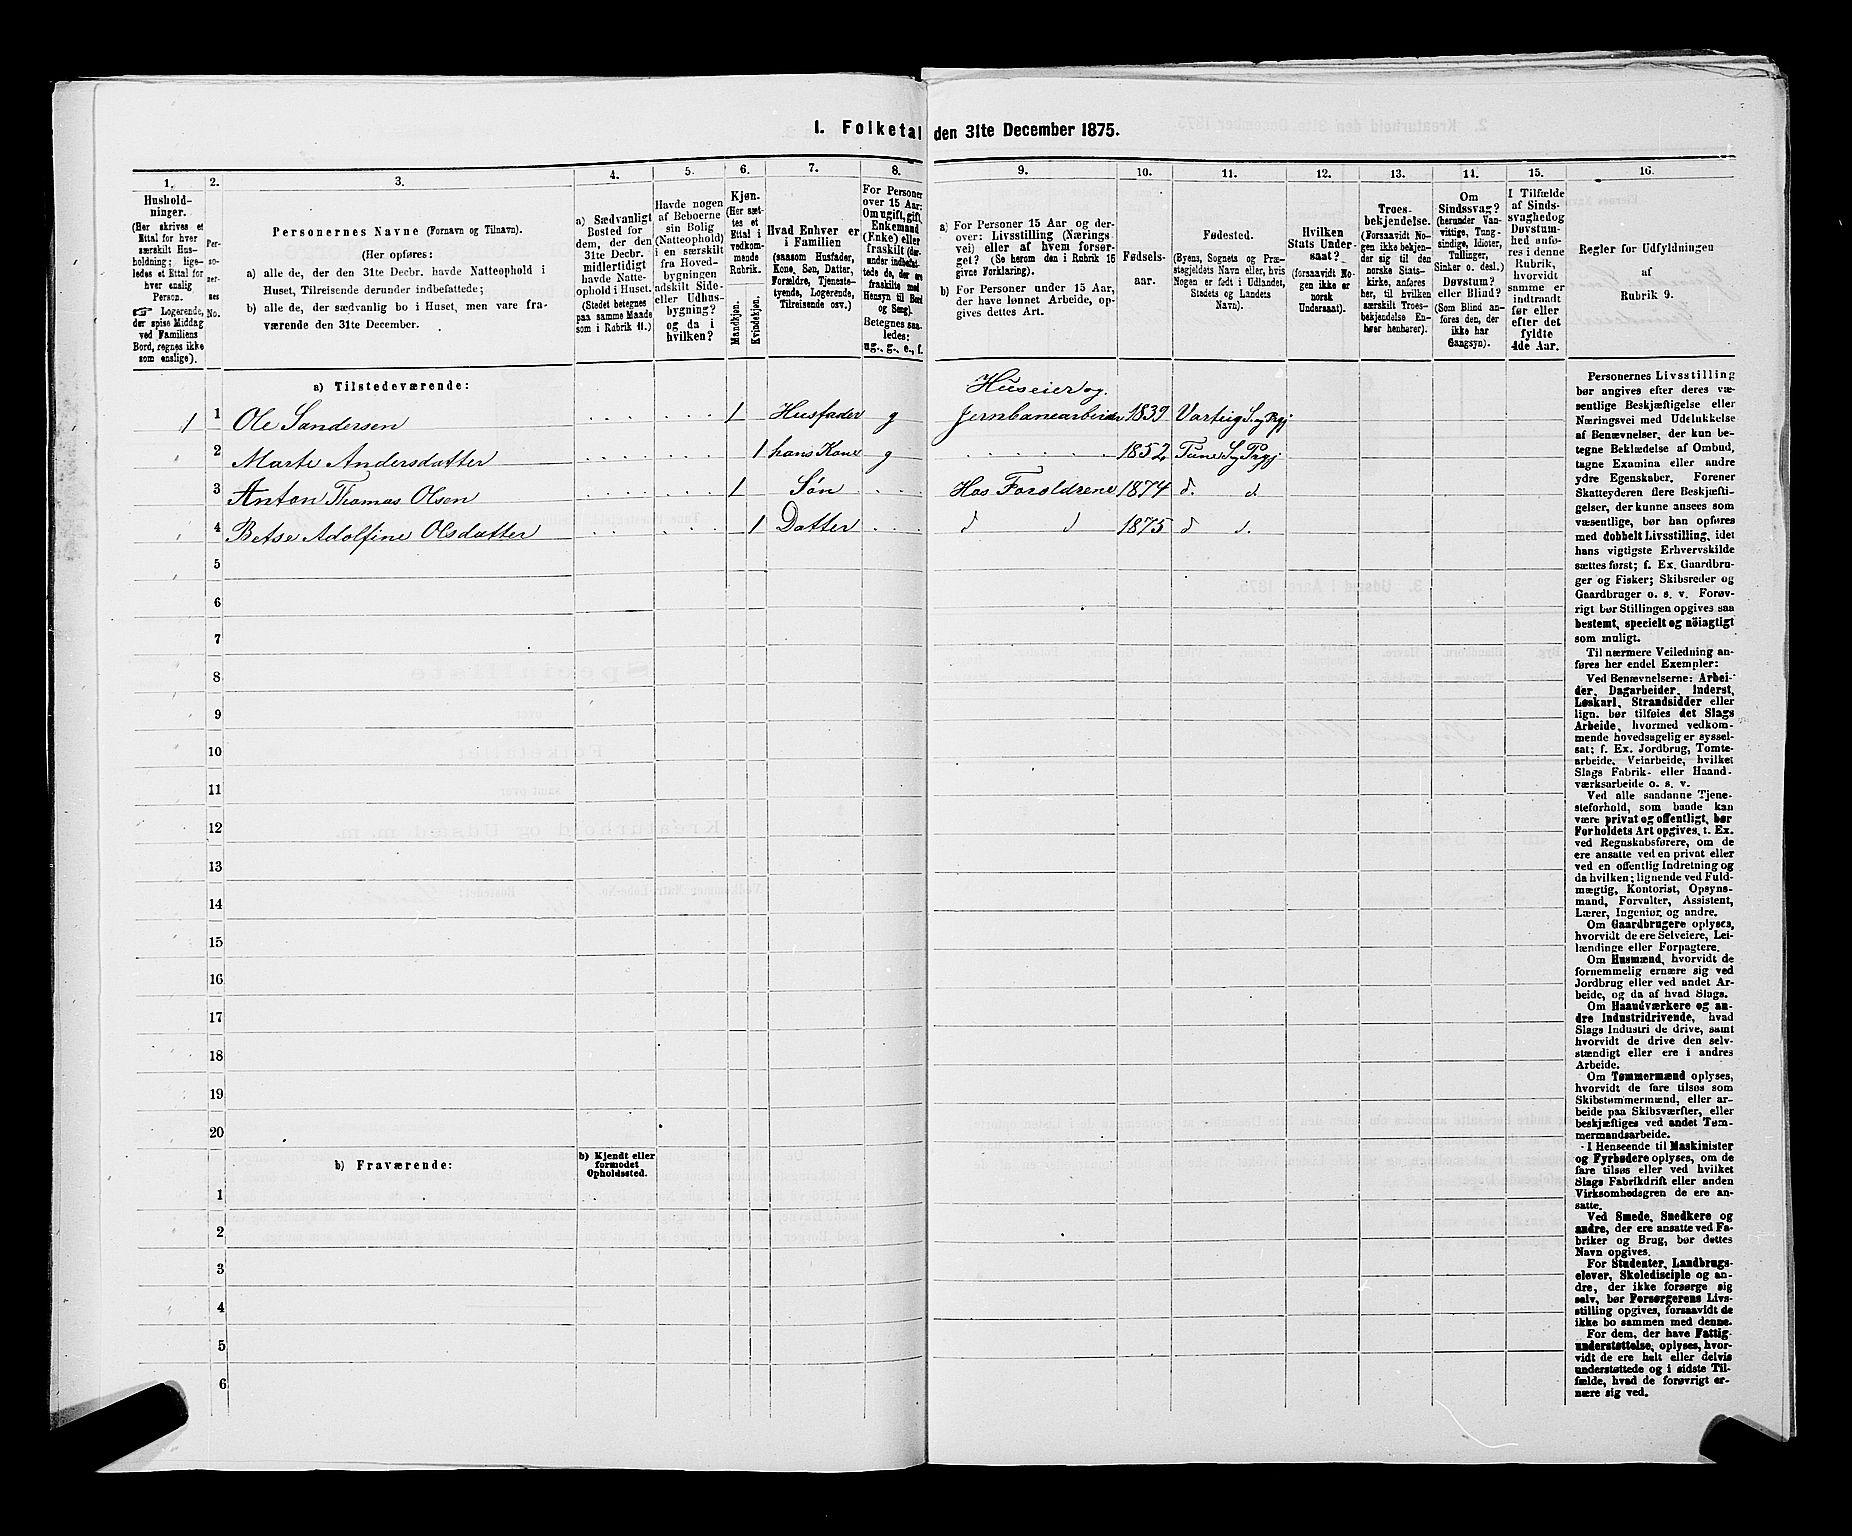 I. Folketal den 31te December 1875.
1.
Hushold-
ninger.
(Her skrives et
Ettal for hver
særskilt Hus-
holdning; lige-
ledes et Ettal for
hver enslig
Person.
☞ Logerende,
der spise Middag
ved Familiens
Bord, regnes ikke
som enslige).
2.
Per-
so-
ner-
nes
No.
3.
Personernes Navne (Fornavn og Tilnavn).
(Her opføres:
a) alle de, der den 31te Decbr. havde Natteophold i
Huset, Tilreisende derunder indbefattede;
b) alle de, der sædvanlig bo i Huset, men vare fra-
værende den 31te December.
4.
a) Sædvanligt
Bosted for
dem, der den
31te Decbr.
midlertidigt
havde Natte-
ophold i Huset.
(Stedet betegnes
paa samme Maade
som i Rubrik 11.)
5.
Havde nogen
af Beboerne
sin Bolig
(Natteophold)
i en særskilt
fra Hoved-
bygningen
adskilt Side-
eller Udhus-
bygning?
og da i
hvilken?
6.
Kjøn.
(Her sæt-
tes et
Ettal i
vedkom-
mende
Rubrik.
Mandkjøn.
Kvindekjøn.
7.
Hvad Enhver er
i Familien
(saasom Husfader,
Kone, Søn, Datter,
Forældre, Tjeneste-
tyende, Logerende,
Tilreisende osv.)
8.
For Personer
over 15 Aar:
Om ugift, gift,
Enkemand
(Enke) eller
fraskilt (der-
under indbefat-
tede de, der ere
fraskilte med
Hensyn til Bord
og Seng).
Betegnes saa-
ledes:
ug., g., e., f.
9.
a) For Personer 15 Aar og der-
over: Livsstilling (Nærings-
vei) eller af hvem forsør-
get? (Se herom den i Rubrik 16
givne Forklaring).
b) For Personer under 15 Aar,
der have lønnet Arbeide, op-
gives dettes Art.
10.
Fødsels-
aar.
11.
Fødested.
(Byens, Sognets og Præ-
stegjeldets Navn eller, hvis
Nogen er født i Udlandet,
Stedets og Landets
Navn).
12.
Hvilken
Stats Under-
saat?
(forsaavidt No-
gen ikke er
norsk
Undersaat).
13.
Troes-
bekjendelse.
(Forsaavidt No-
gen ikke bekjen-
der sig til den
norske Stats-
kirke, anføres
her, til hvilken
særskilt Troes-
bekjendelse En-
hver henhører).
14.
Om
Sindssvag?
(herunder Van-
vittige, Tung-
sindige, Idioter,
Tullinger,
Sinker o. desl.)
Døvstum?
eller Blind?
(Som Blind an-
føres den, der
ikke har
Gangsyn).
15.
I Tilfælde
af Sinds-
svaghed og
Døvstum-
hed anfø-
res i denne
Rubrik,
hvorvidt
samme er
indtraadt
før eller
efter det
fyldte
4de Aar.
16.
Regler for Udfyldningen
af
Rubrik 9.
a) Tilstedeværende:
Huseier og
1 1 Ole Sandersen 1 Husfader g Jernbanearbeider 1839 Varteig S. og Prgj
2 Marte Andersdatter 1 hans Kone g 1852 Tune S. og Prgj
3 Anton Thomas Olsen 1 Søn Hos Forældrene 1874 d. d.
4 Betse Adolfine Olsdatter 1 Datter d d 1875 d d.
5
6
7
8
9
10
11
12
13
14
15
16
17
18
19
20
b) Fraværende:
b) Kjendt eller
formodet
Opholdssted.
1
2
3
4
5
6
Personernes Livsstilling
bør angives efter deres væ-
sentlige Beskjæftigelse eller
Næringsvei med Udelukkelse
af Benævnelser, der kun be-
tegne Beklædelse af Ombud,
tagne Examina eller andre
ydre Egenskaber. Forener
Skatteyderen flere Beskjæfti-
gelser, der kunne ansees som
væsentlige, bør han opføres
med dobbelt Livsstilling, idet
hans vigtigste Erhvervskilde
sættes først; f. Ex. Gaardbru-
ger og Fisker; Skibsreder og
Gaardbruger o. s. v. Forøv-
rigt bør Stillingen opgives saa
bestemt, specielt og nöiagtigt
som muligt.
Til nærmere Veiledning an-
føres her endel Exempler:
Ved Benævnelserne: Arbei-
der, Dagarbeider, Inderst,
Løskarl, Strandsidder eller
lign. bør tilføies det Slags
Arbeide, hvormed vedkom-
mende hovedsagelig er syssel-
sat; f. Ex. Jordbrug, Tomte-
arbeide, Veiarbeide, hvilket
Slags Fabrik- eller Haand-
værksarbeide o. s. v.
Ved alle saadanne Tjene-
steforhold, som baade kan
være privat og offentligt, bør
Forholdets Art opgives, t. Ex.
ved Regnskabsførere, om de
ere ansatte ved en privat eller
ved en offentlig Indretning og
da hvilken; lignende ved Fuld-
mægtig, Kontorist, Opsyns-
mand, Forvalter, Assistent,
Lærer, Ingeniør og andre.
Om Gaardbrugere oplyses,
hvorvidt de ere Selveiere, Lei-
lændinge eller Forpagtere.
Om Husmænd, hvorvidt de
fornemmelig ernære sig ved
Jordbrug eller ved andet Ar-
beide, og da af hvad Slags.
Om Haandværkere og an-
dre Industridrivende, hvad
Slags Industri de drive, samt
hvorvidt de drive den selv-
stændigt eller ere i andres
Arbeide.
Om Tømmermænd oplyses,
hvorvidt de fare tilsøs som
Skibstømmermænd, eller ar-
beide paa Skibsværfter, eller
beskjæftiges ved andet Tøm-
mermandsarbeide.
I Henseende til Maskinister
og Fyrbødere oplyses, om de
fare tilsøs eller ved hvilket
Slags Fabrikdrift eller anden
Virksomhedsgren de ere an-
satte.
Ved Smede, Snedkere og
andre, der ere ansatte ved Fa-
briker og Brug, bør dettes
Navn opgives.
For Studenter, Landbrugs-
elever, Skoledisciple og an-
dre, der ikke forsørge sig
selv, bør Forsørgerens Livs-
stilling opgives, forsaavidt de
ikke bo sammen med denne.
For dem, der have Fattig-
understøttelse, oplyses, hvor-
vidt de ere helt eller delvis
understøttede og i sidste Til-
fælde, hvad de forøvrigt er-
nære sig ved.